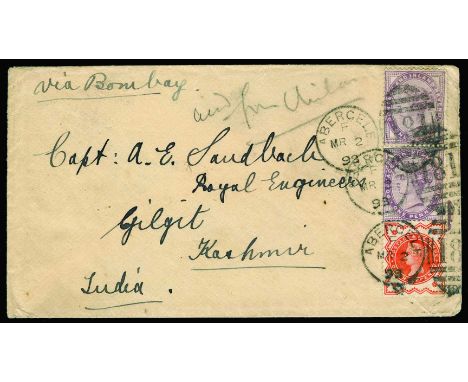 via Bombay
and from Chilas
ABERCELE
MR 2
93
Capt: A. E. Sandbach
Royal Engineers
Gilgit
Kashmir
India.